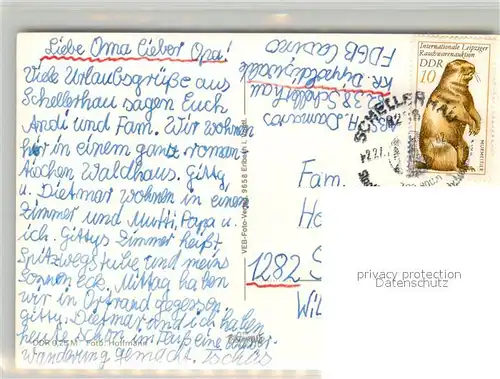 Liebe Oma Lieber Opa!
Viele Urlaubsgrüße aus
Schellerhau sagen Euch
Andi und Fam. Wir wohnen
hier in einem ganz roman-
tischen Waldhaus. Gitty
u. Dietmar wohnen in einem
Zimmer und Mutti, Papa u.
ich. Gittys Zimmer heißt
Spitzwegstube und meins
Sonnen Eck. Mittag haben
wir in Ortrand gegessen.
Gitty, Dietmar und ich haben
heute schon zu Fuß eine
wanderung gemacht. Tschüs
DDR 0,25 M Foto: Hoffmann
VEB-Foto-Verlag 9658 Erlbach i. Vogtl.
H.
8238 Schellerhau
Kr. Dippoldiswalde
FDGB Casino
Internationale Leipziger
Rauchwarenauktion
DDR
10
MURMELTIER
SCHELLERHAU
Fam.
1282
privacy protection
Datenschutz